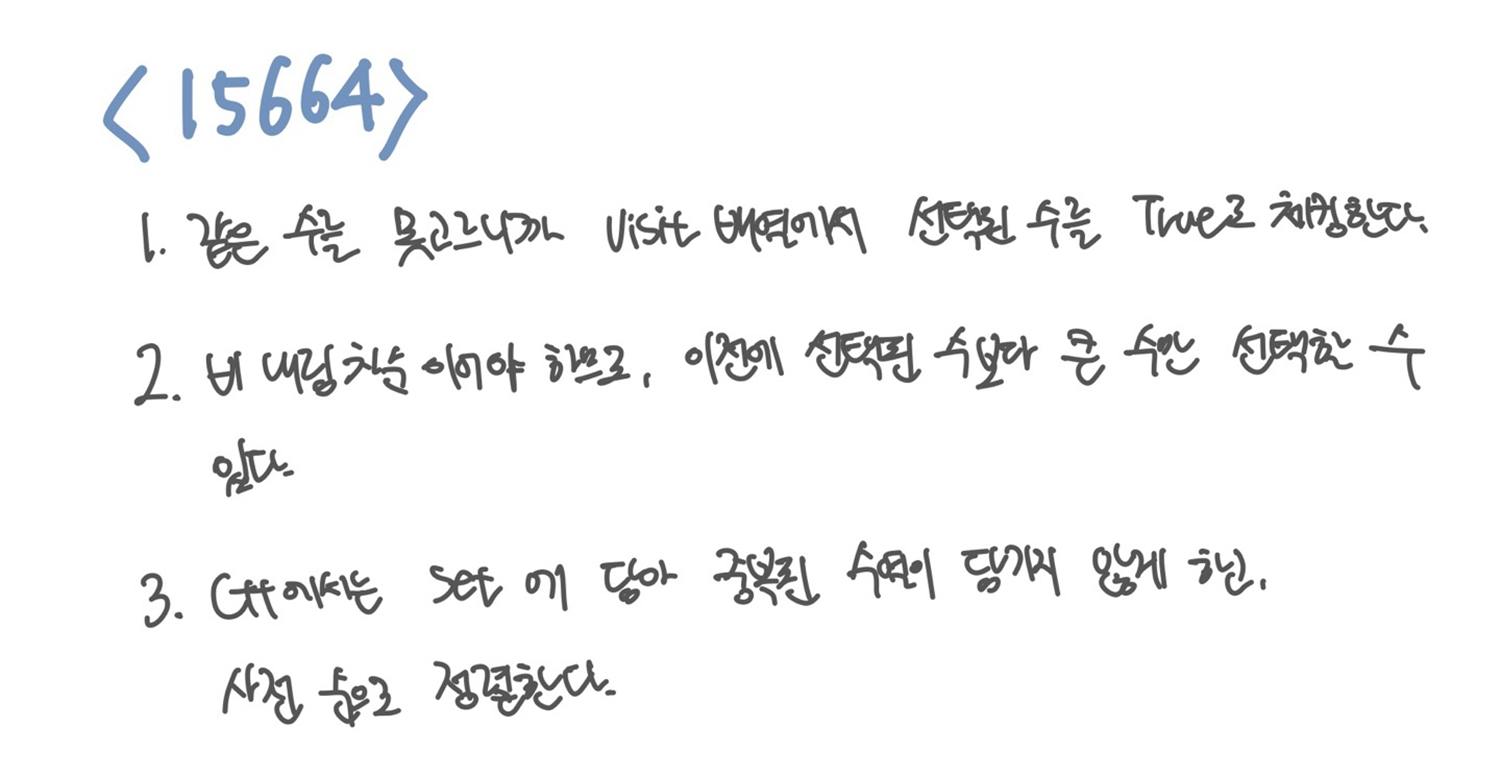 <15664>
1. 같은 수를 못고르니까 visit 배열에서 선택된 수를 True로 체킹한다.
2. 비 내림차순 이어야 하므로, 이전에 선택된 수보다 큰 수만 선택할 수
있다.
3. C++에서는 set 에 담아 중복된 수열이 담기지 않게 하고,
사전 순으로 정렬한다.